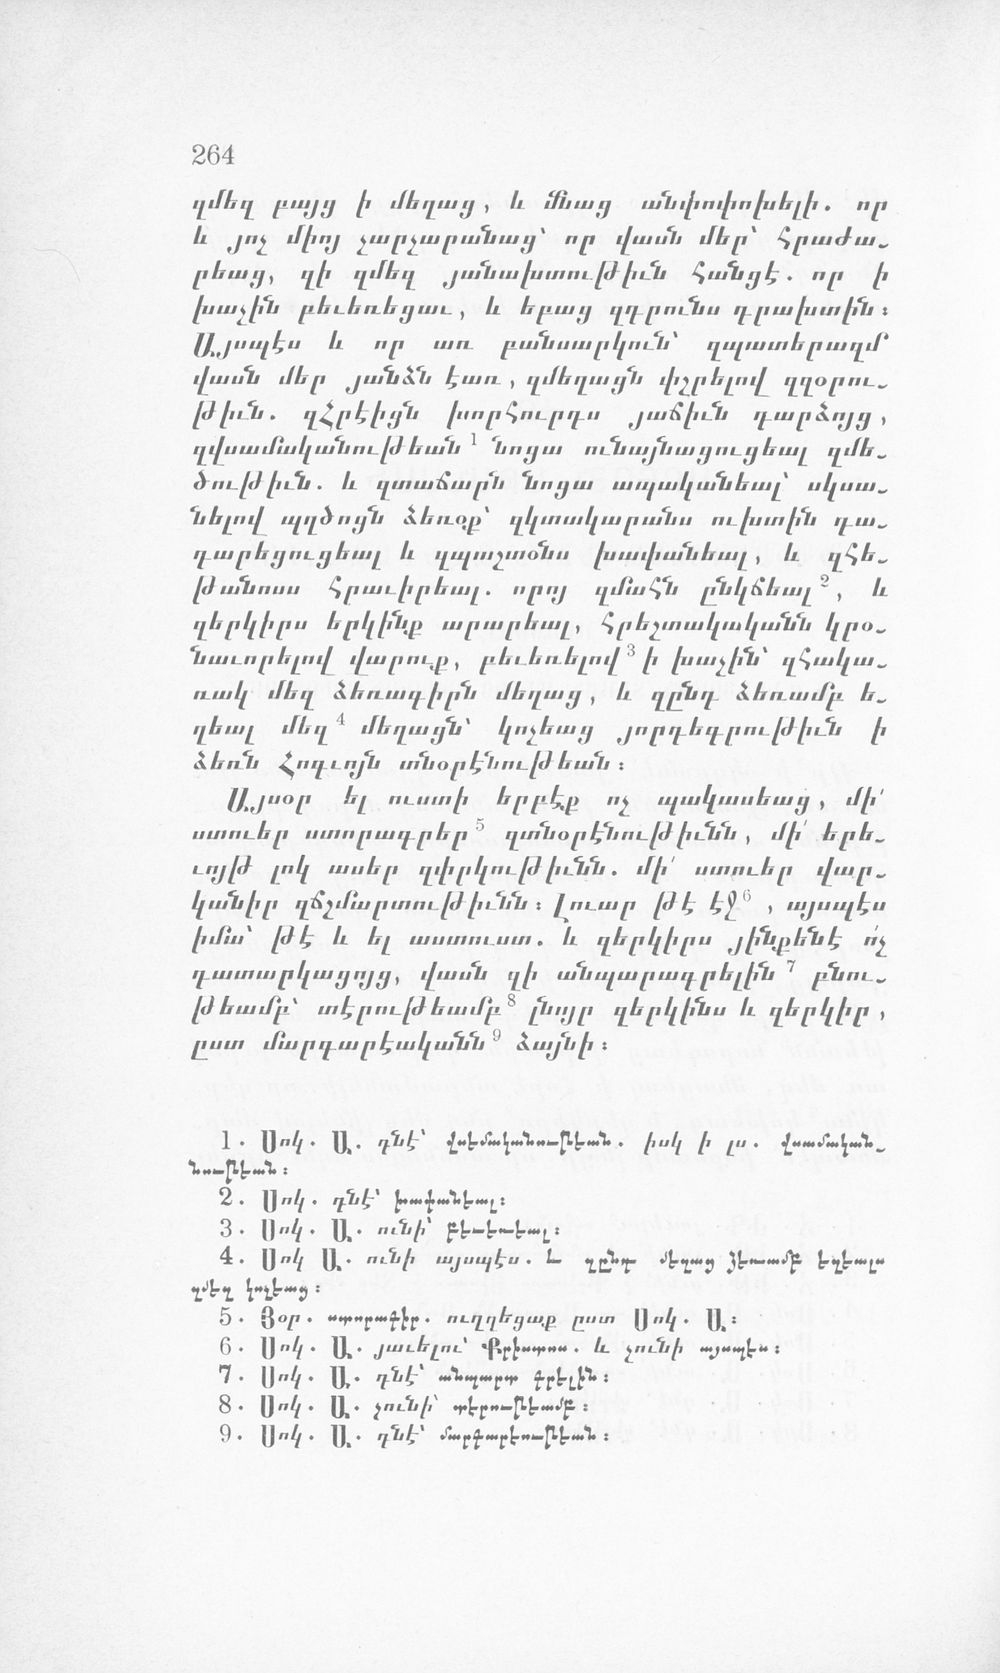 264
զմեզ բայց ի մեղաց, և մնաց անփոփոխելի. որ
և յոչ միոյ չարչարանաց՝ որ վասն մեր՝ հրաժա-
րեաց, զի զմեզ յանախտութիւն հանցէ. որ ի
խաչին բեւեռեցաւ, և եբաց զդրունս դրախտին:
Այսպէս և որ առ բանսարկուն՝ զպատերազմ
վասն մեր յանձն էառ, զմեղացն փշրելով զզօրու-
թիւն. զՀրէիցն խորհուրդս յաճիւն դարձոյց,
զվսամականութեան 1 նոցա ունայնացուցեալ զմե-
ծութիւն. և զտաճարն նոցա ապականեալ՝ սկսա-
նելով պղծոցն ձեռօք՝ զկտակարանս ուխտին դա-
դարեցուցեալ և զպաշտօնս խափանեալ, և զհե-
թանոսս հրաւիրեալ. որոյ զմահն ընկճեալ 2, և
զերկիրս երկինք արարեալ, հրեշտակականն կրօ-
նաւորելով վարուք, բեւեռելով 3 ի խաչին՝ զհակա-
ռակ մեզ ձեռագիրն մեղաց, և զընդ ձեռամբ ե-
ղեալ մեզ 4 մեղացն՝ կոչեաց յորդեգրութիւն ի
ձեռն Հոգւոյն տնօրէնութեան:
Այսօր ել ուստի երբէք ոչ պակասեաց, մի՛
ստուեր ստորագրեր 5 զտնօրէնութիւնն, մի՛ երե-
ւոյթ լոկ ասեր զփրկութիւնն. մի՛ ստուեր վար-
կանիր զճշմարտութիւնն: Լուար թէ էջ 6, այսպէս
իմա՝ թէ և ել աստուստ. և զերկիրս յինքենէ ո՛չ
դատարկացոյց, վասն զի անպարագրելին 7 բնու-
թեամբ՝ տէրութեամբ 8 լնոյր զերկինս և զերկիր,
ըստ մարգարէականն 9 ձայնի:
1. Սոկ. Ա. դնէ՝ վսեմականութեան. իսկ ի լս. վսամական-
նութեան:
2. Սոկ. դնէ՝ խափանեալ:
3. Սոկ. Ա. ունի՝ բեւեռեալ:
4. Սոկ Ա. ունի այսպէս. և զընդ մեղաց ձեռամբ եղեալս
զմեզ կոչեաց:
5. Յօր. ստորագիր. ուղղեցաք ըստ Սոկ. Ա:
6. Սոկ. Ա. յաւելու՝ Քրիստոս. և չունի այսպէս:
7. Սոկ. Ա. դնէ՝ անպարտ գրելին:
8. Սոկ. Ա. չունի՝ տէրութեամբ:
9. Սոկ. Ա. դնէ՝ մարգարէութեան: